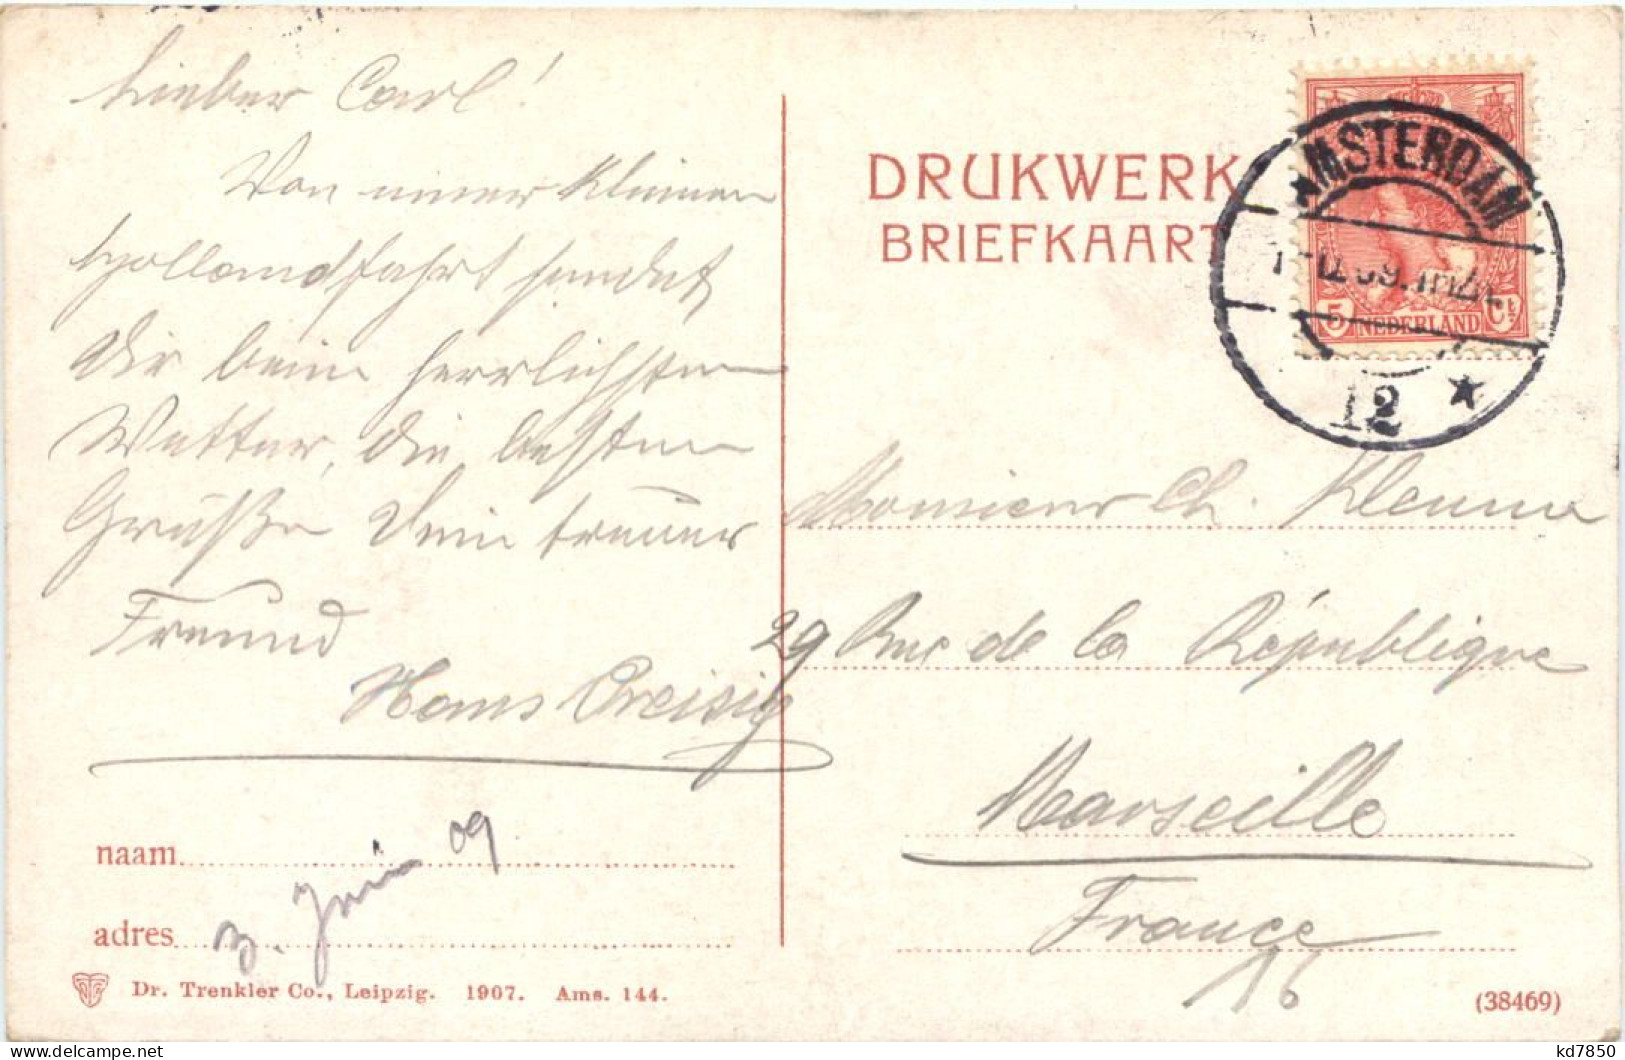 Lieber Carl!
Von einer kleinen
Hollandfahrt sendet
Dir beim herrlichsten
Wetter, die besten
Grüße Dein treuer
Freund
Hans Preisig
naam
3. Juni 09
adres
Dr. Trenkler Co., Leipzig. 1907. Ams. 144.
DRUKWERK
BRIEFKAART
AMSTERDAM
12
5 NEDERLAND Ct
Monsieur Ch. Klemm
29 Rue de la République
Marseille
France
16
(38469)
kd7850